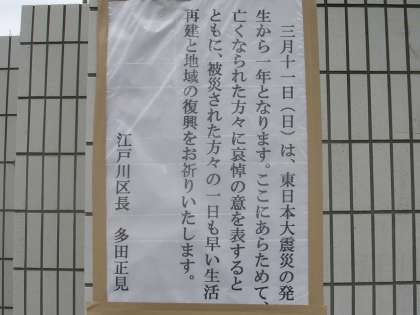 三月十一日（日）は、東日本大震災の発
生から一年となります。ここにあらためて、
亡くなられた方々に哀悼の意を表すると
ともに、被災された方々の一日も早い生活
再建と地域の復興をお祈りいたします。
江戸川区長　多田正見